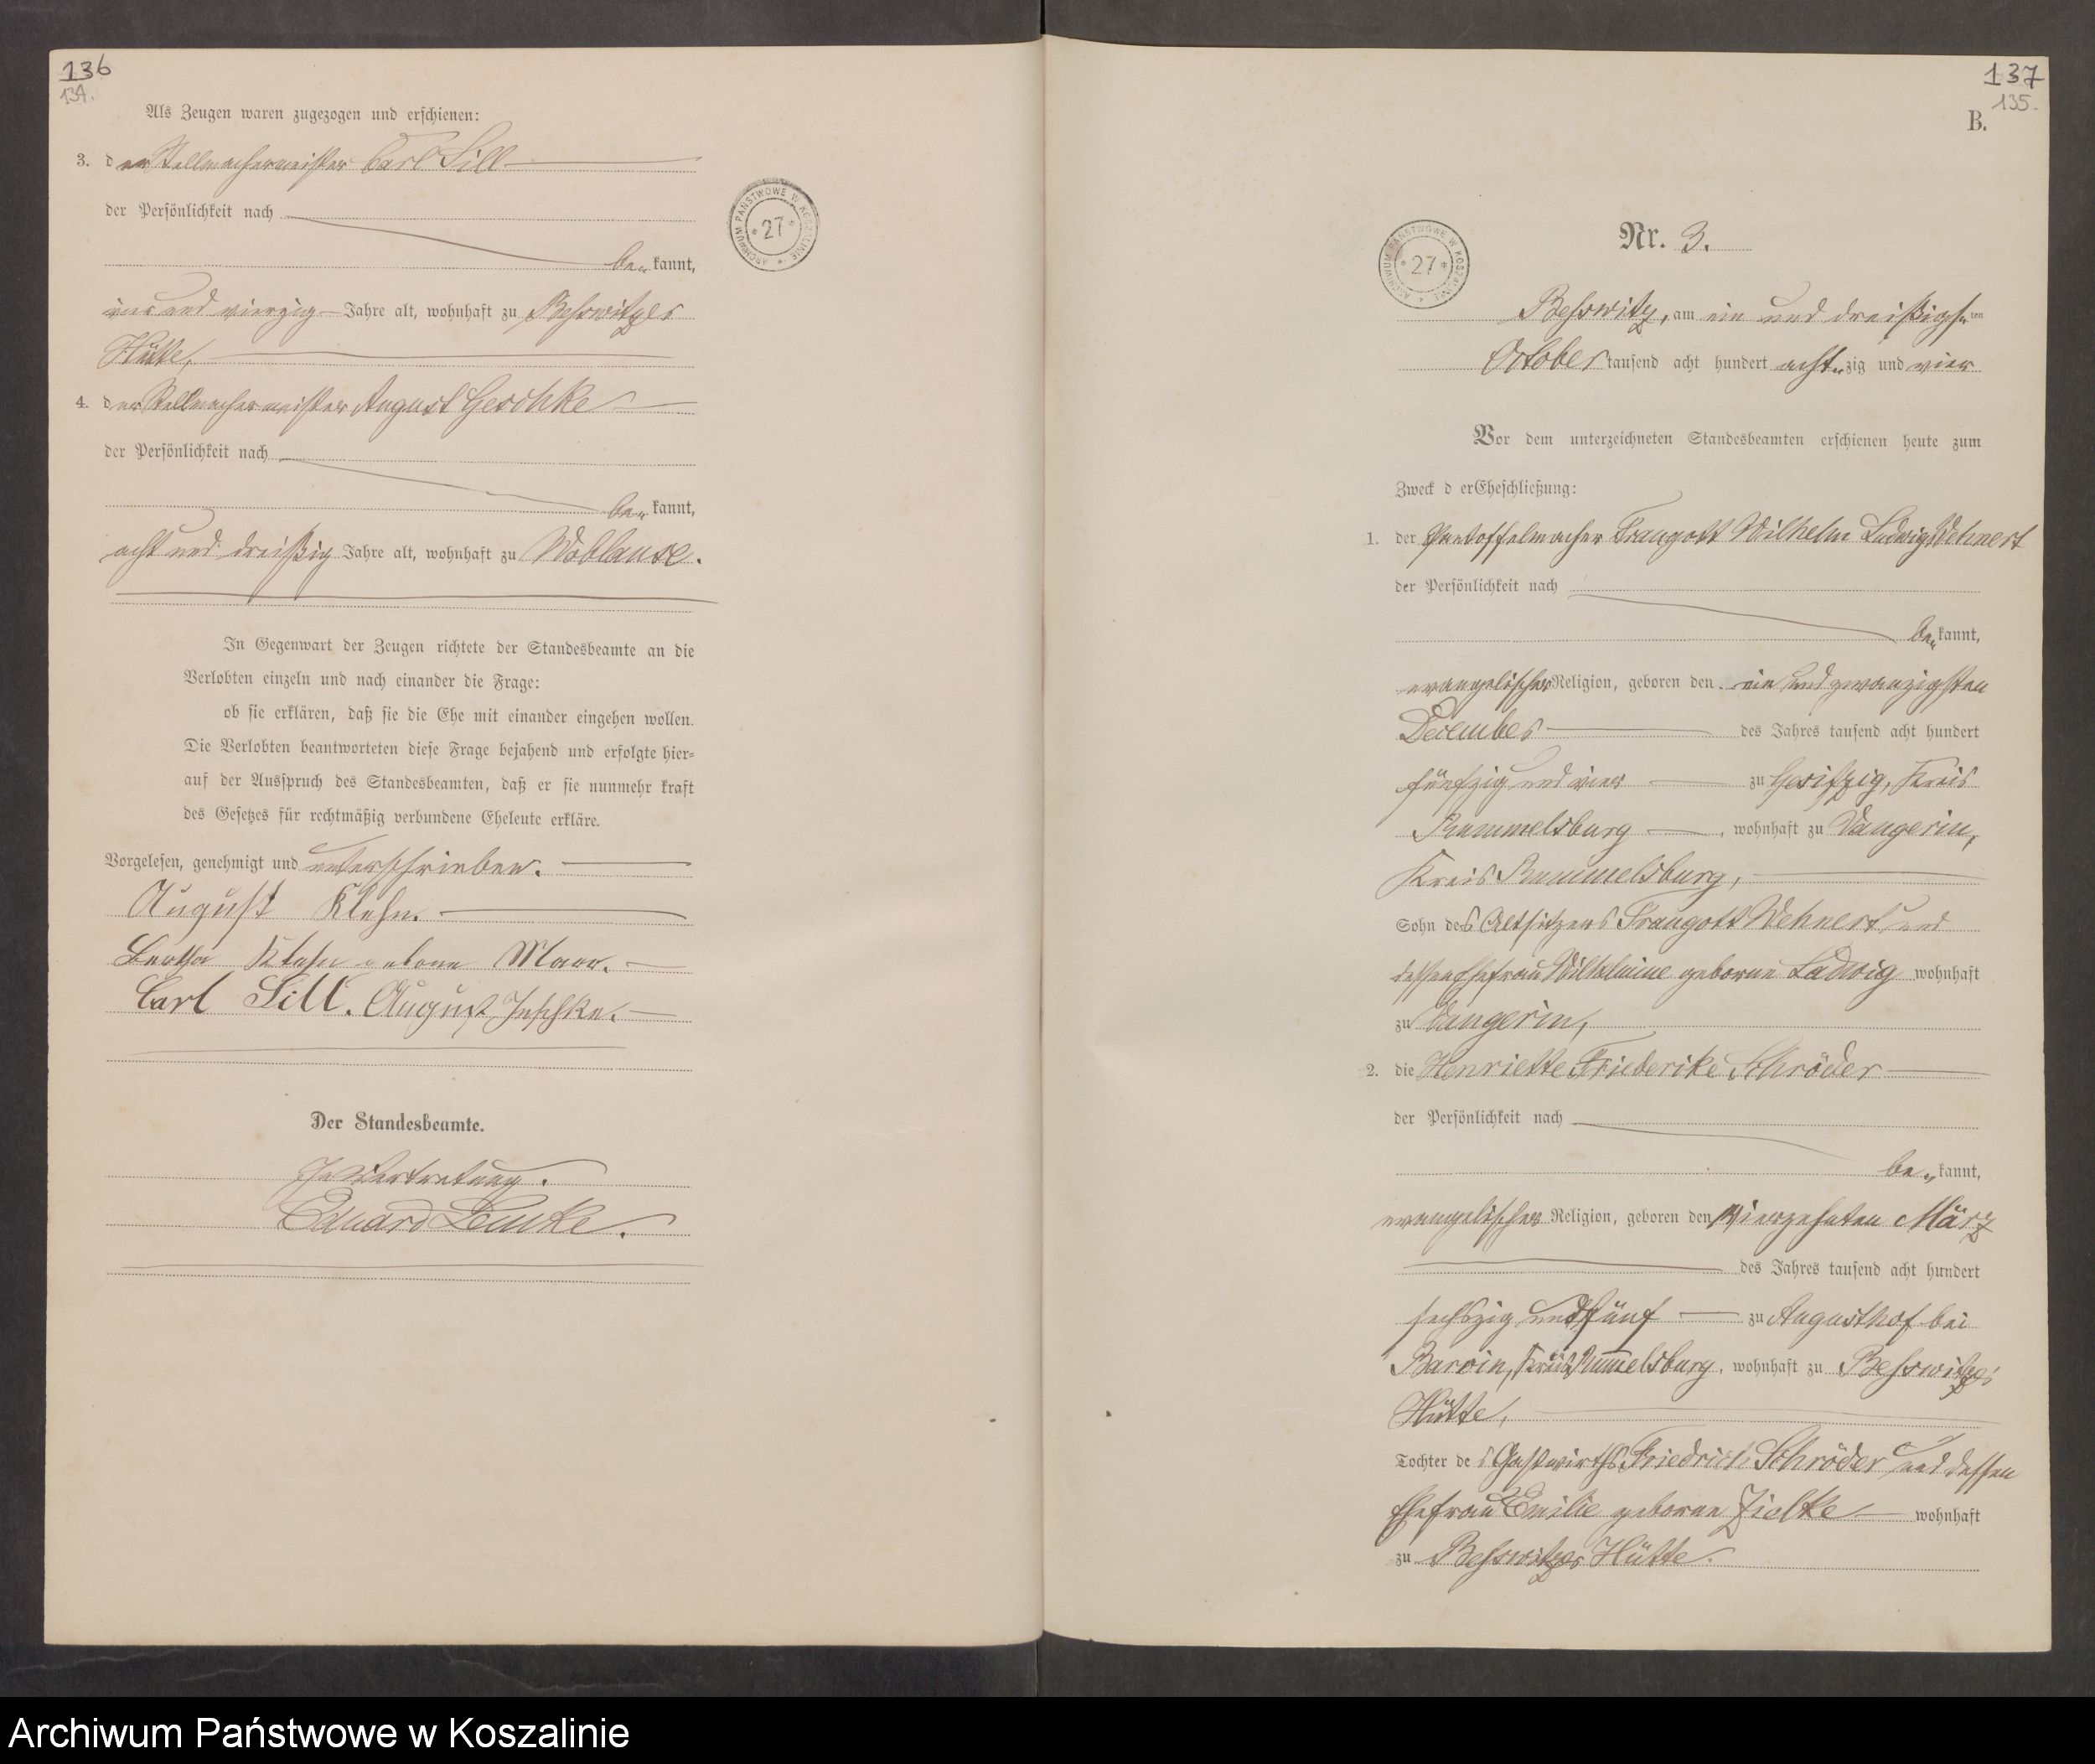 136
134.
Als Zeugen waren zugezogen und erschienen:
3. der Stellmachermeister Carl Sill
der Persönlichkeit nach
be kannt,
und vierzig Jahre alt, wohnhaft zu Beßwitzer
Hütte,
4. der Stellmachermeister August Geschke
der Persönlichkeit nach
be kannt,
acht und dreißig Jahre alt, wohnhaft zu Woblanse.
In Gegenwart der Zeugen richtete der Standesbeamte an die
Verlobten einzeln und nach einander die Frage:
ob sie erklären, daß sie die Ehe mit einander eingehen wollen.
Die Verlobten beantworteten diese Frage bejahend und erfolgte hier-
auf der Ausspruch des Standesbeamten, daß er sie nunmehr kraft
des Gesetzes für rechtmäßig verbundene Eheleute erkläre.
Vorgelesen, genehmigt und unterschrieben.
August Klehn.
Bertha Klehn geborne
Carl Sill. August Jeschke.
Der Standesbeamte.
In Vertretung.
Eduard Lemke.
ARCHIWUM PAŃSTWOWE W KOSZALINIE
* 27 *
137
135.
B.
ARCHIWUM PAŃSTWOWE W KOSZALINIE
* 27 *
Nr. 3.
Beßwitz, am ein und dreißigsten
October tausend acht hundert acht zig und vier
Vor dem unterzeichneten Standesbeamten erschienen heute zum
Zweck der Eheschließung:
1. der Pantoffelmacher Traugott Wilhelm Ludwig Wehnert
der Persönlichkeit nach
be kannt,
evangelischer Religion, geboren den ein und zwanzigsten
December des Jahres tausend acht hundert
fünfzig und vier zu Gesifzig, Kreis
Rummelsburg, wohnhaft zu Vangerin,
Kreis Rummelsburg,
Sohn des Altsitzers Traugott Wehnert und
dessen Ehefrau Wilhelmine geborne Ladwig wohnhaft
zu Vangerin,
2. die Henriette Friederike Schröder
der Persönlichkeit nach
be kannt,
evangelischer Religion, geboren den vierzehnten März
des Jahres tausend acht hundert
sechszig und fünf zu Augusthof bei
Barvin, Kreis Rummelsburg, wohnhaft zu Beßwitzer
Hütte,
Tochter des Gastwirths Friedrich Schröder und dessen
Ehefrau Emilie geborne Zielke wohnhaft
zu Beßwitzer Hütte.
Archiwum Państwowe w Koszalinie